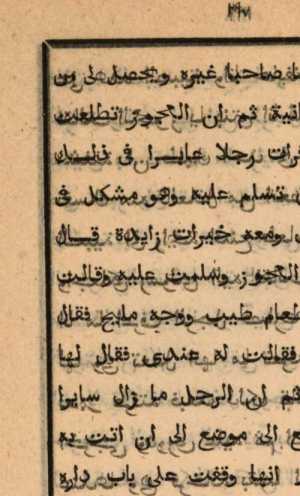 ٢٩٧
صاحبا غيره ويحصل لى من
ثانية ثم ان العجوز تطلعت
فرات رجلا عابرا فى
تسلم عليه وهو مشكل فى
ومعه خيرات زايدة قال
العجوز وسلمت عليه وقالت
طعام طيب ووجه مليح فقال
فقالت له عندى فقال لها
ثم ان الرجل ما زال سايرا
الى موضع الى ان اتت به
انها وقفت على باب داره